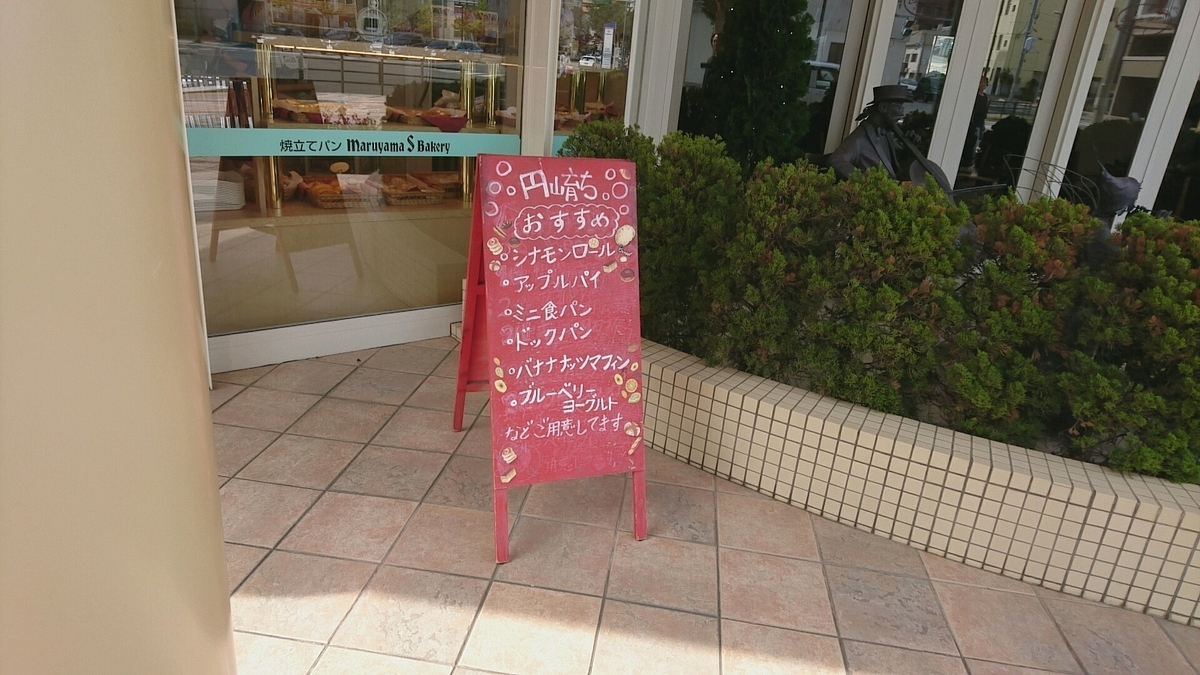 焼立てパン Maruyama S Bakery
円山育ち
おすすめ
シナモンロール
アップルパイ
ミニ食パン
ドックパン
バナナナッツマフィン
ブルーベリー
ヨーグルト
などご用意してます